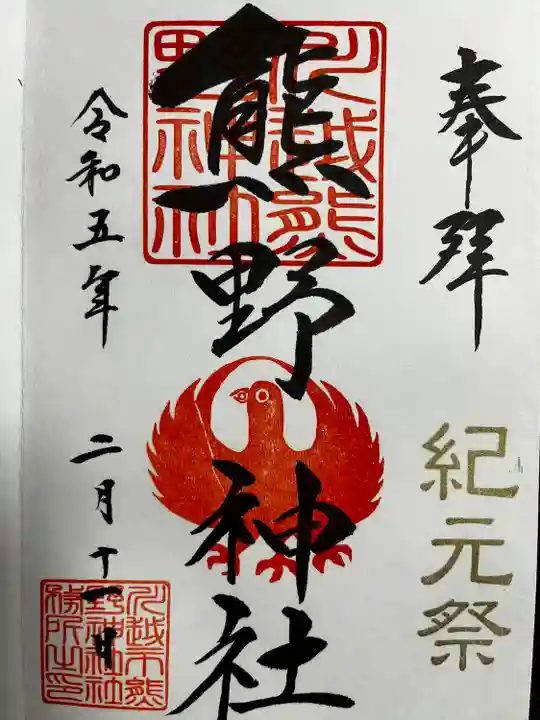 奉拝
紀元祭
川越熊
野神社
熊野神社
令和五年
二月十一日
川越市熊
野神社社
務所之印